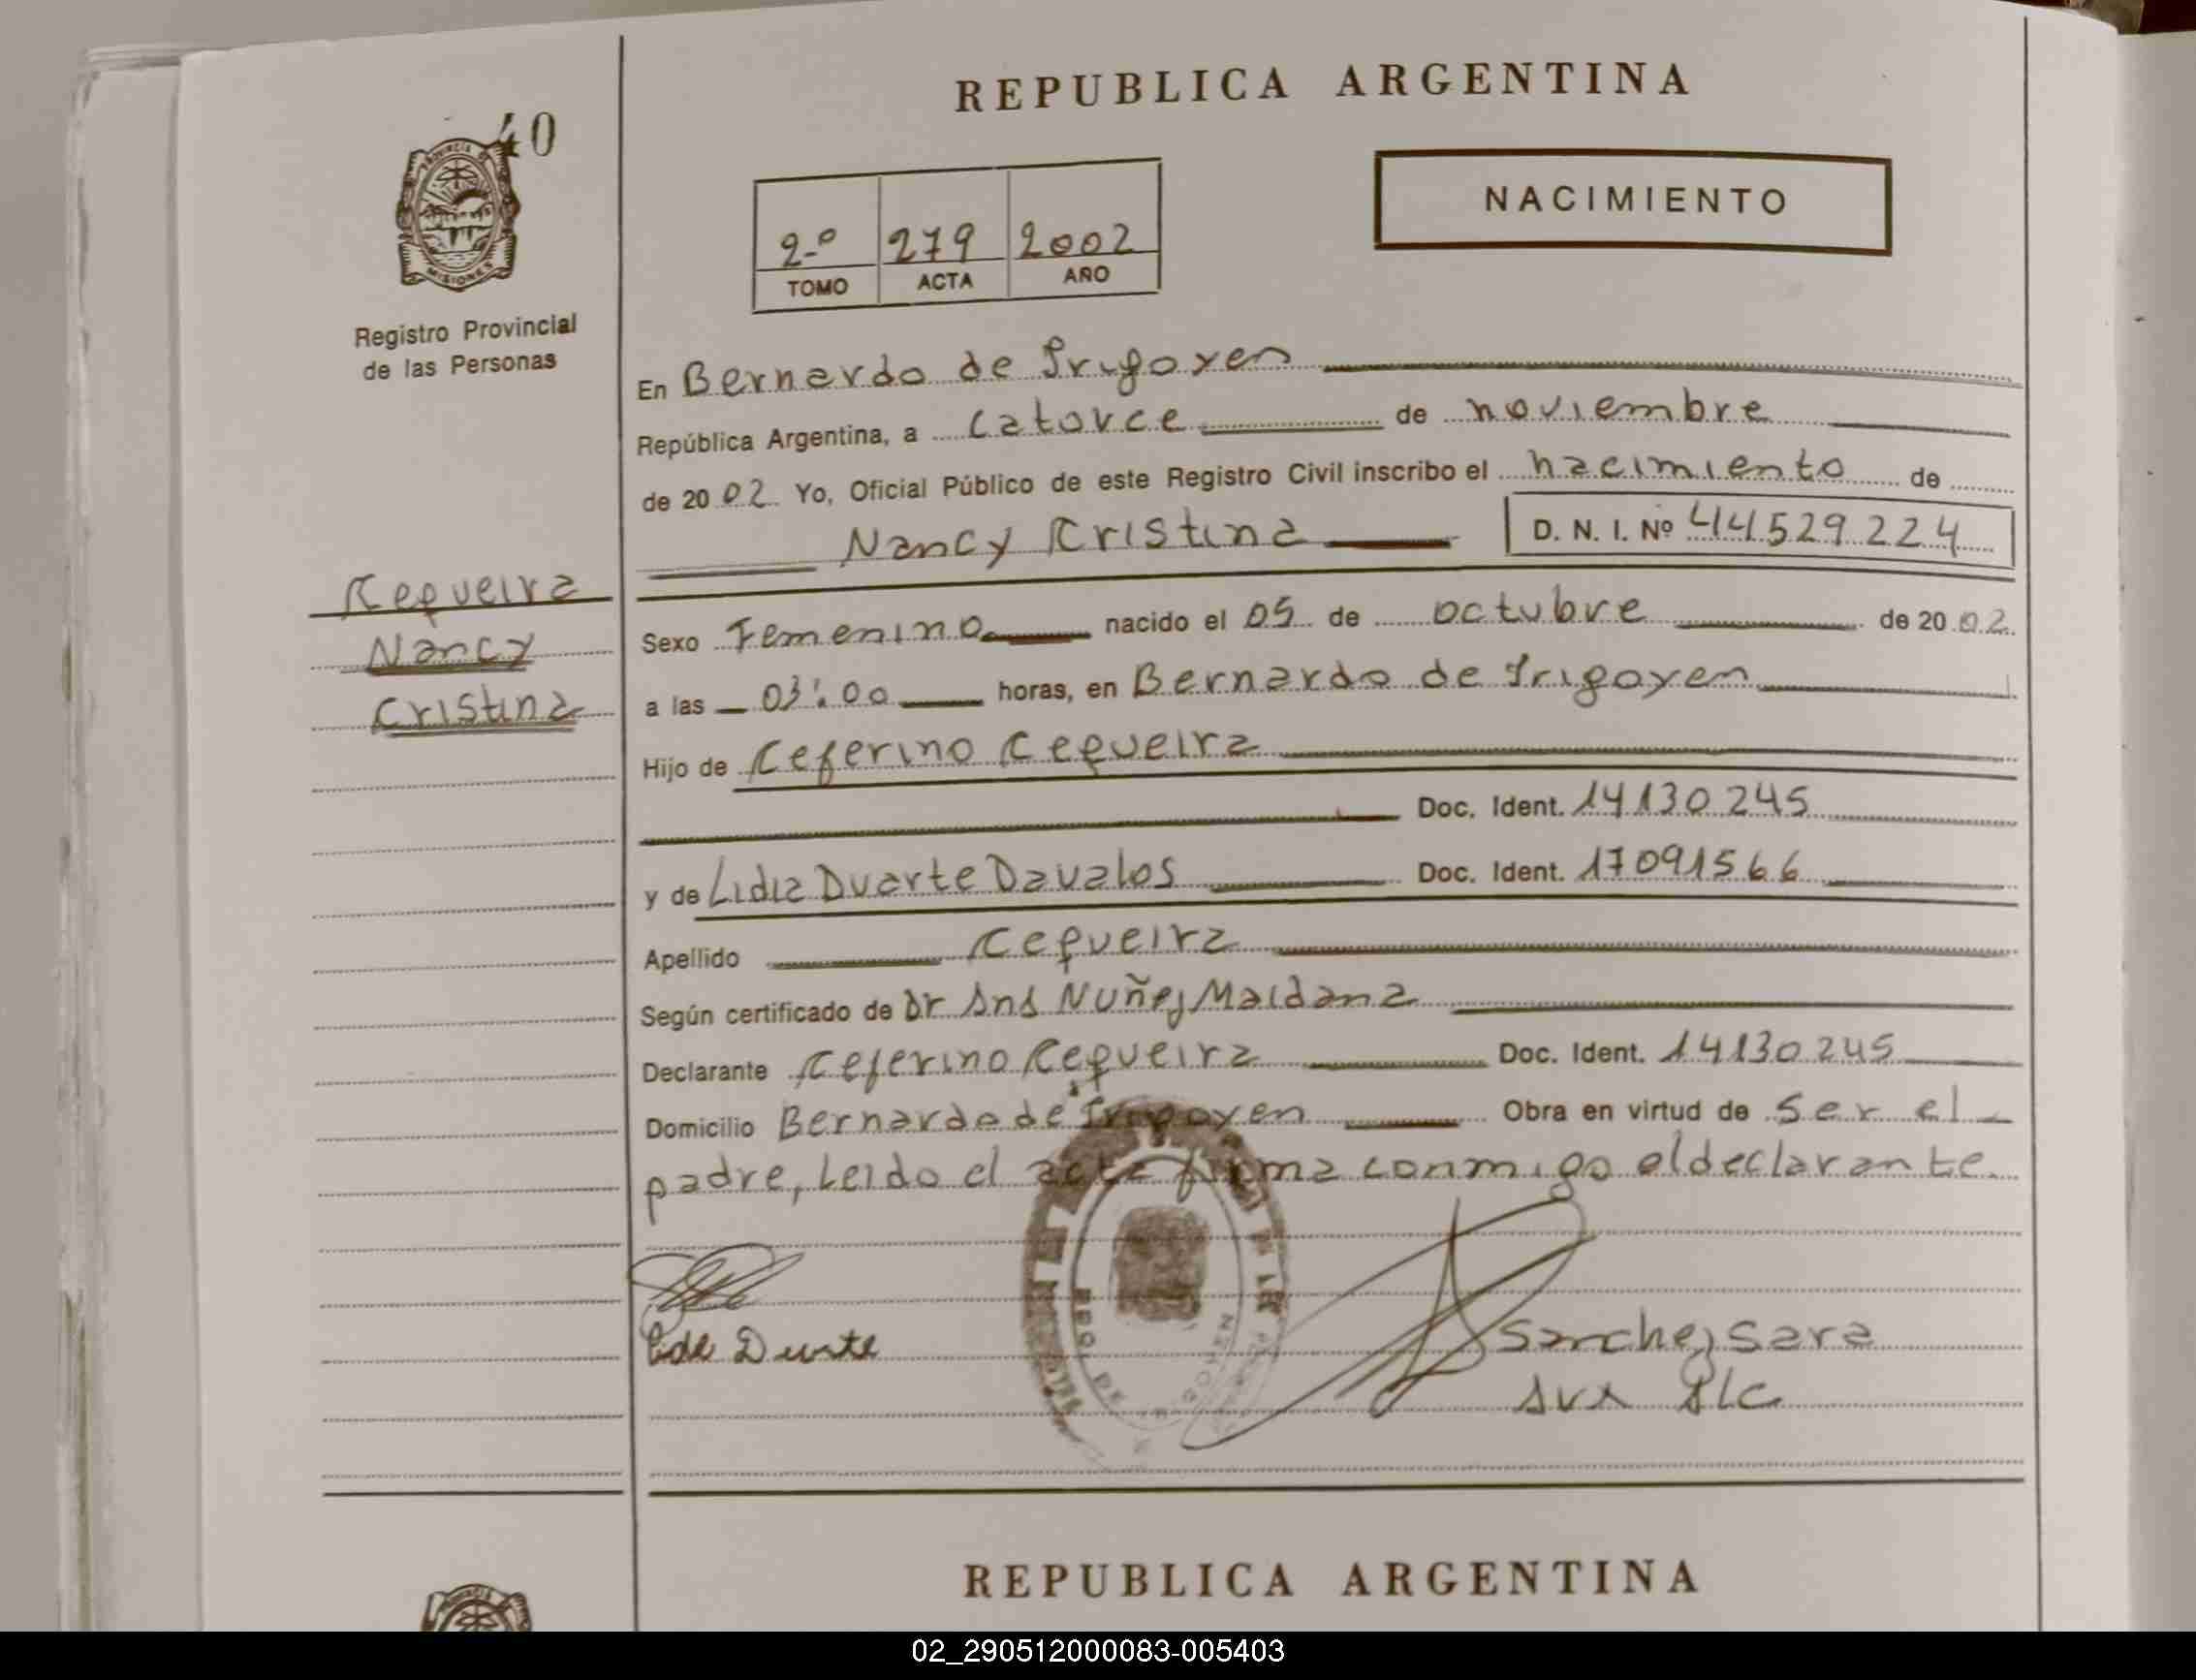 REPUBLICA ARGENTINA
40
NACIMIENTO
2º 279 2002
TOMO ACTA AÑO
MISIONES
Registro Provincial
de las Personas
En Bernardo de Irigoyen
República Argentina, a catorce de noviembre
de 2002 Yo, Oficial Público de este Registro Civil inscribo el nacimiento de
Nancy Cristina D. N. I. Nº 44529224
Cequeira
Nancy
Cristina
Sexo Femenino nacido el 05 de octubre de 2002
a las 03:00 horas, en Bernardo de Irigoyen
Hijo de Ceferino Cequeira
Doc. Ident. 14130245
y de Lidia Duarte Davalos Doc. Ident. 17091566
Apellido Cequeira
Según certificado de Dr Nuñez Maldana
Declarante Ceferino Cequeira Doc. Ident. 14130245
Domicilio Bernardo de Irigoyen Obra en virtud de ser el
padre, Leido el acta firma conmigo el declarante.
Sanchez Sara
Duarte
REPUBLICA ARGENTINA
02_290512000083-005403